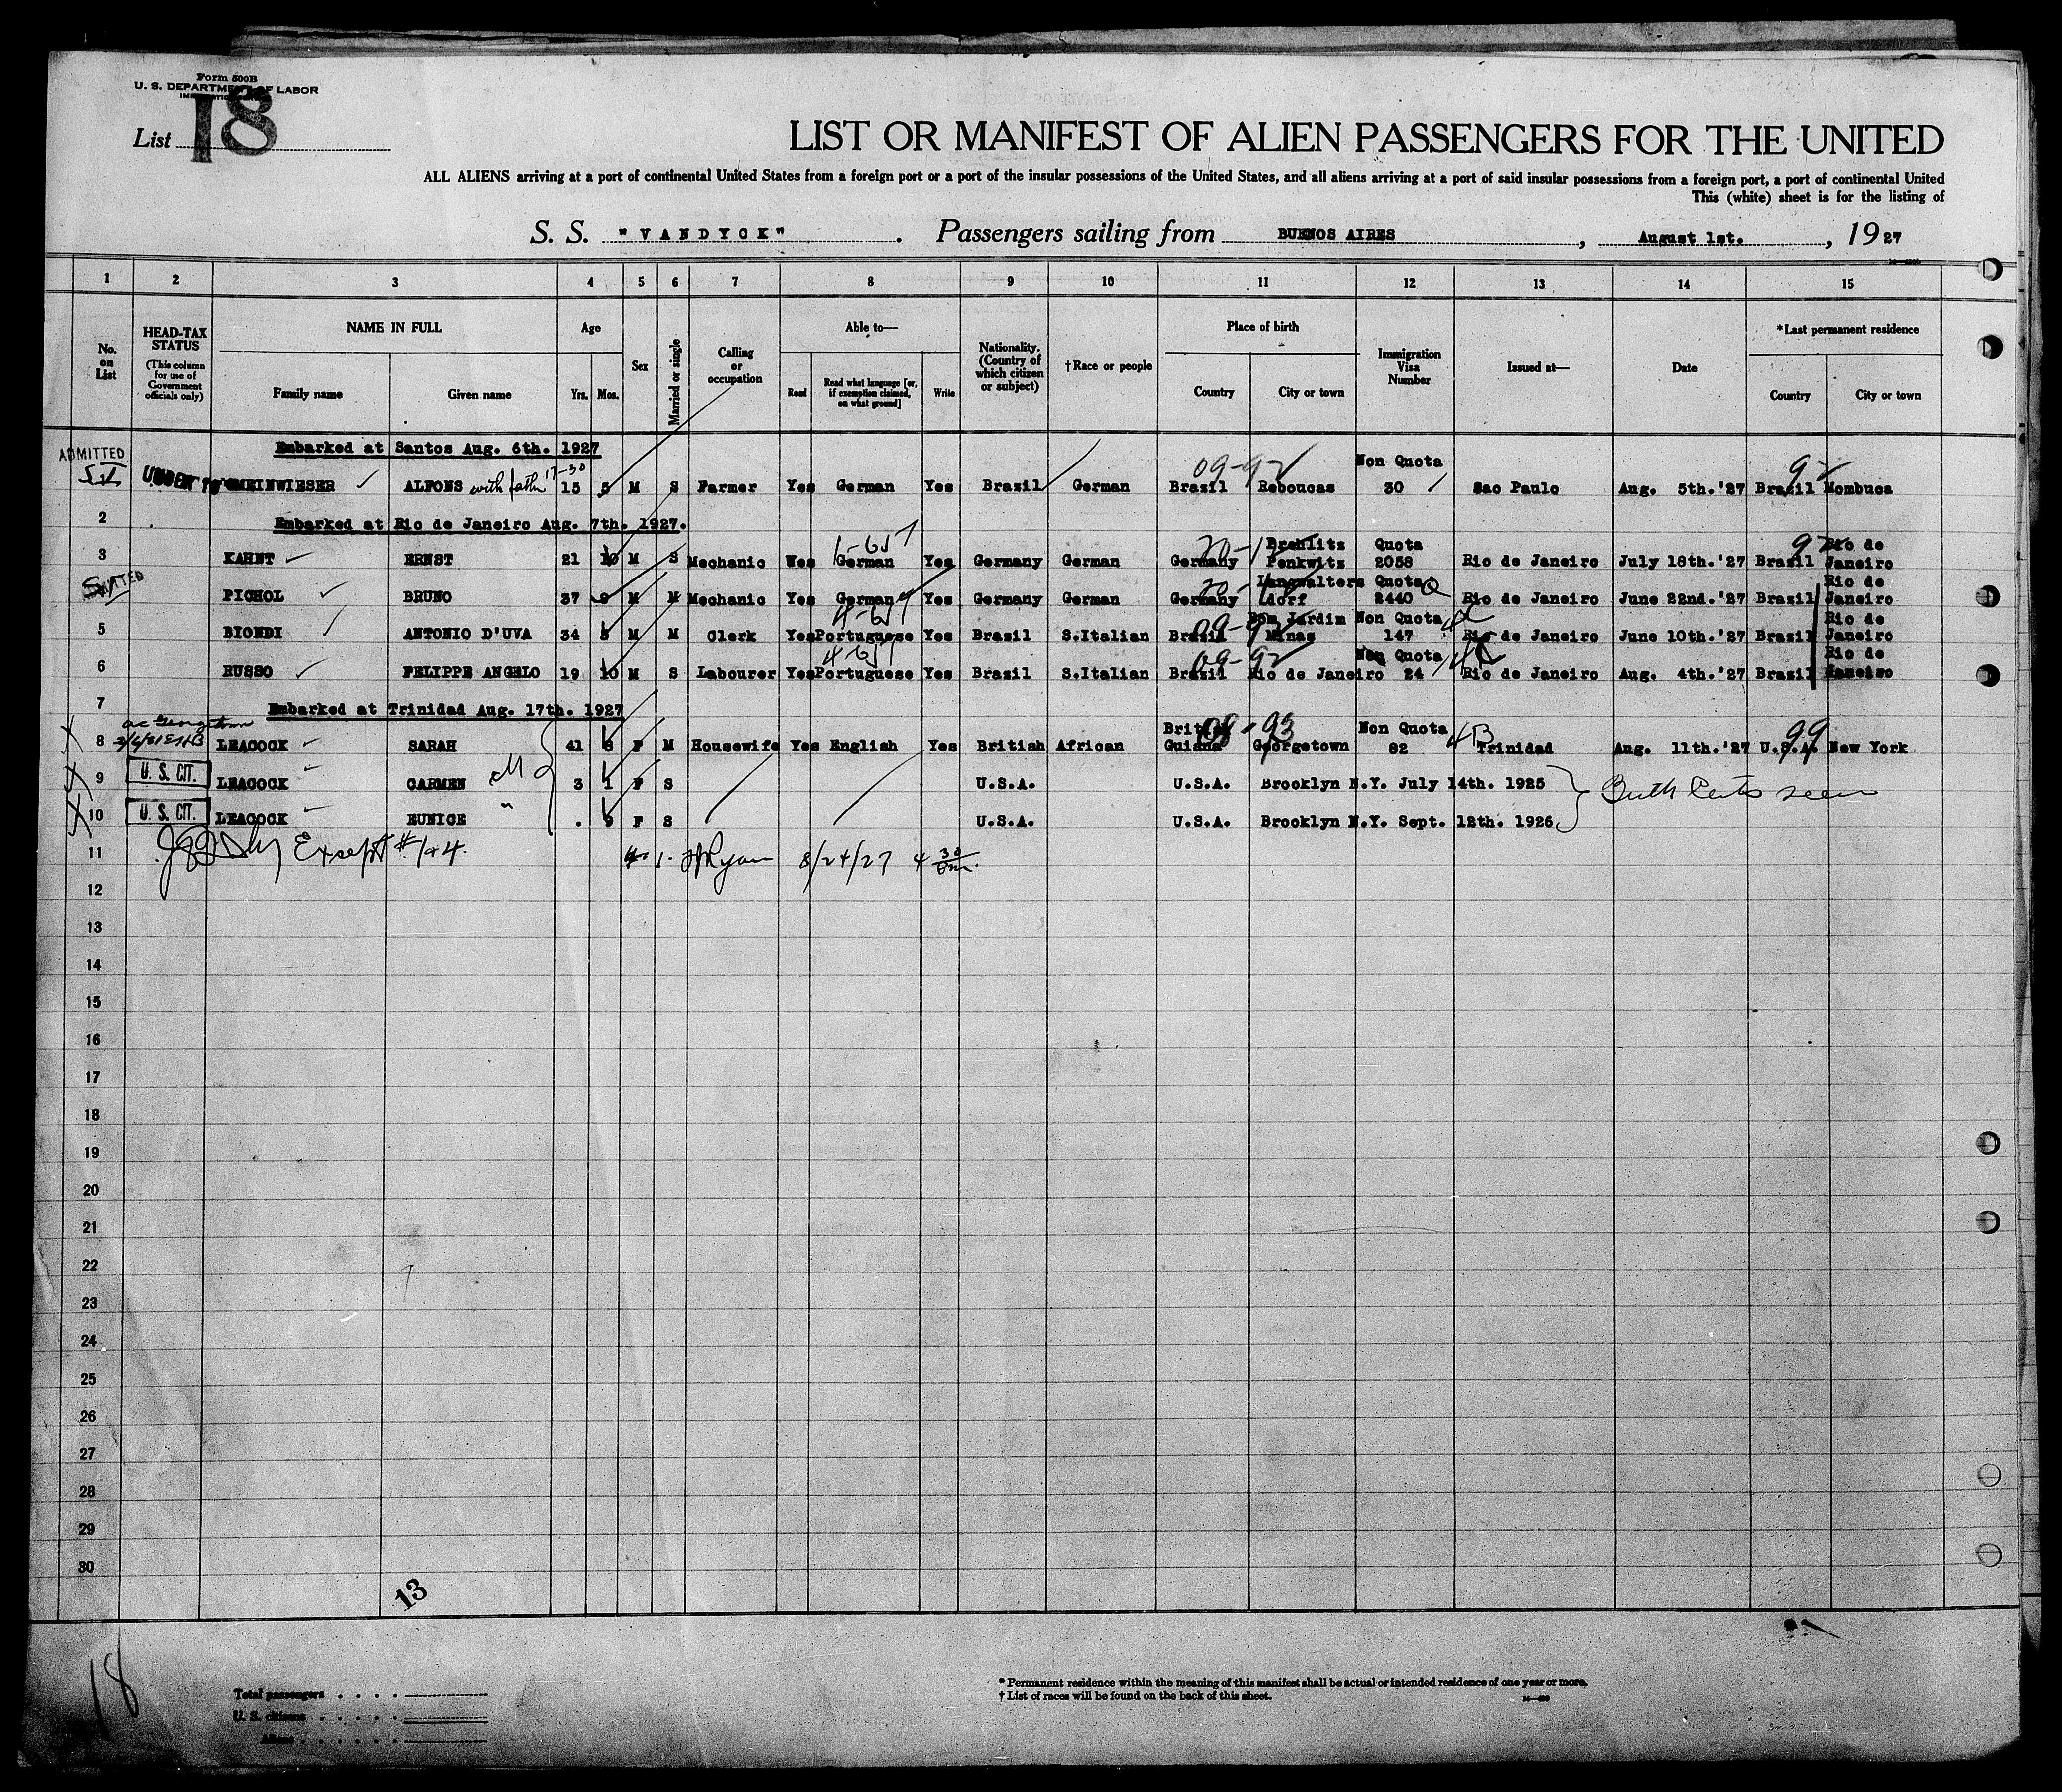 Form 500B
U. S. DEPARTMENT OF LABOR
List 18
LIST OR MANIFEST OF ALIEN PASSENGERS FOR THE UNITED
ALL ALIENS arriving at a port of continental United States from a foreign port or a port of the insular possessions of the United States, and all aliens arriving at a port of said insular possessions from a foreign port, a port of continental United
This (white) sheet is for the listing of
S. S. "VANDYCK" . Passengers sailing from BUENOS AIRES , August 1st. , 1927
1 2 3 4 5 6 7 8 9 10 11 12 13 14 15
No. on List
HEAD-TAX STATUS (This column for use of Government officials only)
NAME IN FULL Family name Given name
Age Yrs. Mos.
Sex
Married or single
Calling or occupation
Able to— Read Read what language [or, if exemption claimed, on what ground] Write
Nationality. (Country of which citizen or subject)
†Race or people
Place of birth Country City or town
Immigration Visa Number
Issued at—
Date
*Last permanent residence Country City or town
Embarked at Santos Aug. 6th. 1927
ADMITTED MEINWIESER ALFONS with father 15 5 M S Farmer Yes German Yes Brazil German 09-92 Brazil Reboucas Non Quota 30 Sao Paulo Aug. 5th.'27 92 Brazil Mombuca
2 Embarked at Rio de Janeiro Aug. 7th. 1927.
3 KAHNT ERNST 21 10 M S Mechanic Yes German Yes Germany German Germany Penkwitz Quota 2058 Rio de Janeiro July 18th.'27 Brazil Rio de Janeiro
PICHOL BRUNO 37 9 M M Mechanic Yes German Yes Germany German Germany Langwalters dorf Quota 2440 Rio de Janeiro June 22nd.'27 Brazil Rio de Janeiro
5 BIONDI ANTONIO D'UVA 34 5 M M Clerk Yes Portuguese Yes Brazil S.Italian 09-92 Brazil Bom Jardim Minas Non Quota 147 Rio de Janeiro June 10th.'27 Brazil Rio de Janeiro
6 RUSSO FELIPPE ANGELO 19 10 M S Labourer Yes Portuguese Yes Brazil S.Italian 09-92 Brazil Rio de Janeiro Non Quota 24 Rio de Janeiro Aug. 4th.'27 Brazil Rio de Janeiro
7 Embarked at Trinidad Aug. 17th. 1927
8 LEACOCK SARAH 41 8 F M Housewife Yes English Yes British African 08-93 British Guiana Georgetown Non Quota 82 4B Trinidad Aug. 11th.'27 99 U.S.A. New York
9 U. S. CIT. LEACOCK CARMEN 3 1 F S U.S.A. U.S.A. Brooklyn N.Y. July 14th. 1925
Birth Certs seen
10 U. S. CIT. LEACOCK EUNICE " . 9 F S U.S.A. U.S.A. Brooklyn N.Y. Sept. 12th. 1926
11 Except # 1 & 4. Ryan 8/24/27 4 30 pm.
12
13
14
15
16
17
18
19
20
21
22
23
24
25
26
27
28
29
30
13
18
Total passengers
U. S. citizens
Aliens
* Permanent residence within the meaning of this manifest shall be actual or intended residence of one year or more.
† List of races will be found on the back of this sheet.